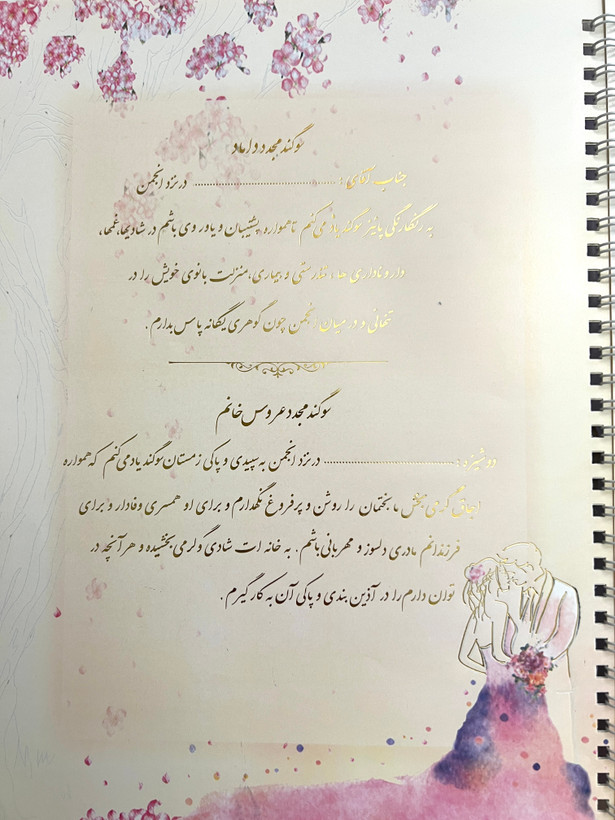 سوگند مجدد داماد
جناب آقای: .................................... در نزد انجمن
به رنگارنگی پائیز سوگند یاد می‌کنم تا همواره پشتیبان و یاور وی باشم در شادیها، غمها،
دار و ناداری ها، تندرستی و بیماری، منزلت بانوی خویش را در
تنهائی و در میان انجمن چون گوهری یگانه پاس بدارم.
سوگند مجدد عروس خانم
دوشیزه: .................................... در نزد انجمن به سپیدی و پاکی زمستان سوگند یاد می‌کنم که همواره
اجاق گرمی بخش ما بختمان را روشن و پرفروغ نگهدارم و برای او همسری وفادار و برای
فرزندانم مادری دلسوز و مهربانی باشم. به خانه ات شادی و گرمی بخشیده و هر آنچه در
توان دارم را در آذین بندی و پاکی آن به کار گیرم.